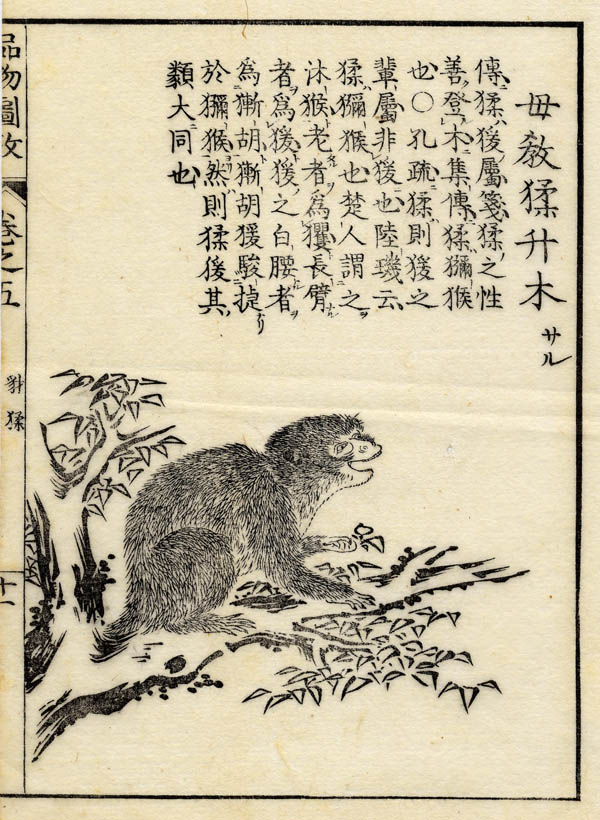 毋教猱升木 サル
傳猱猨屬箋猱之性
善登木集傳猱獼猴
也○孔疏猱則猨之
輩屬非猨也陸璣云
猱獼猴也楚人謂之
沐猴老者為玃長臂
者為猨猨之白腰者
為獑胡獑胡猨駿捷
於獼猴然則猱猨其
類大同也
品物圖攷
卷之五
豺 猱
十一